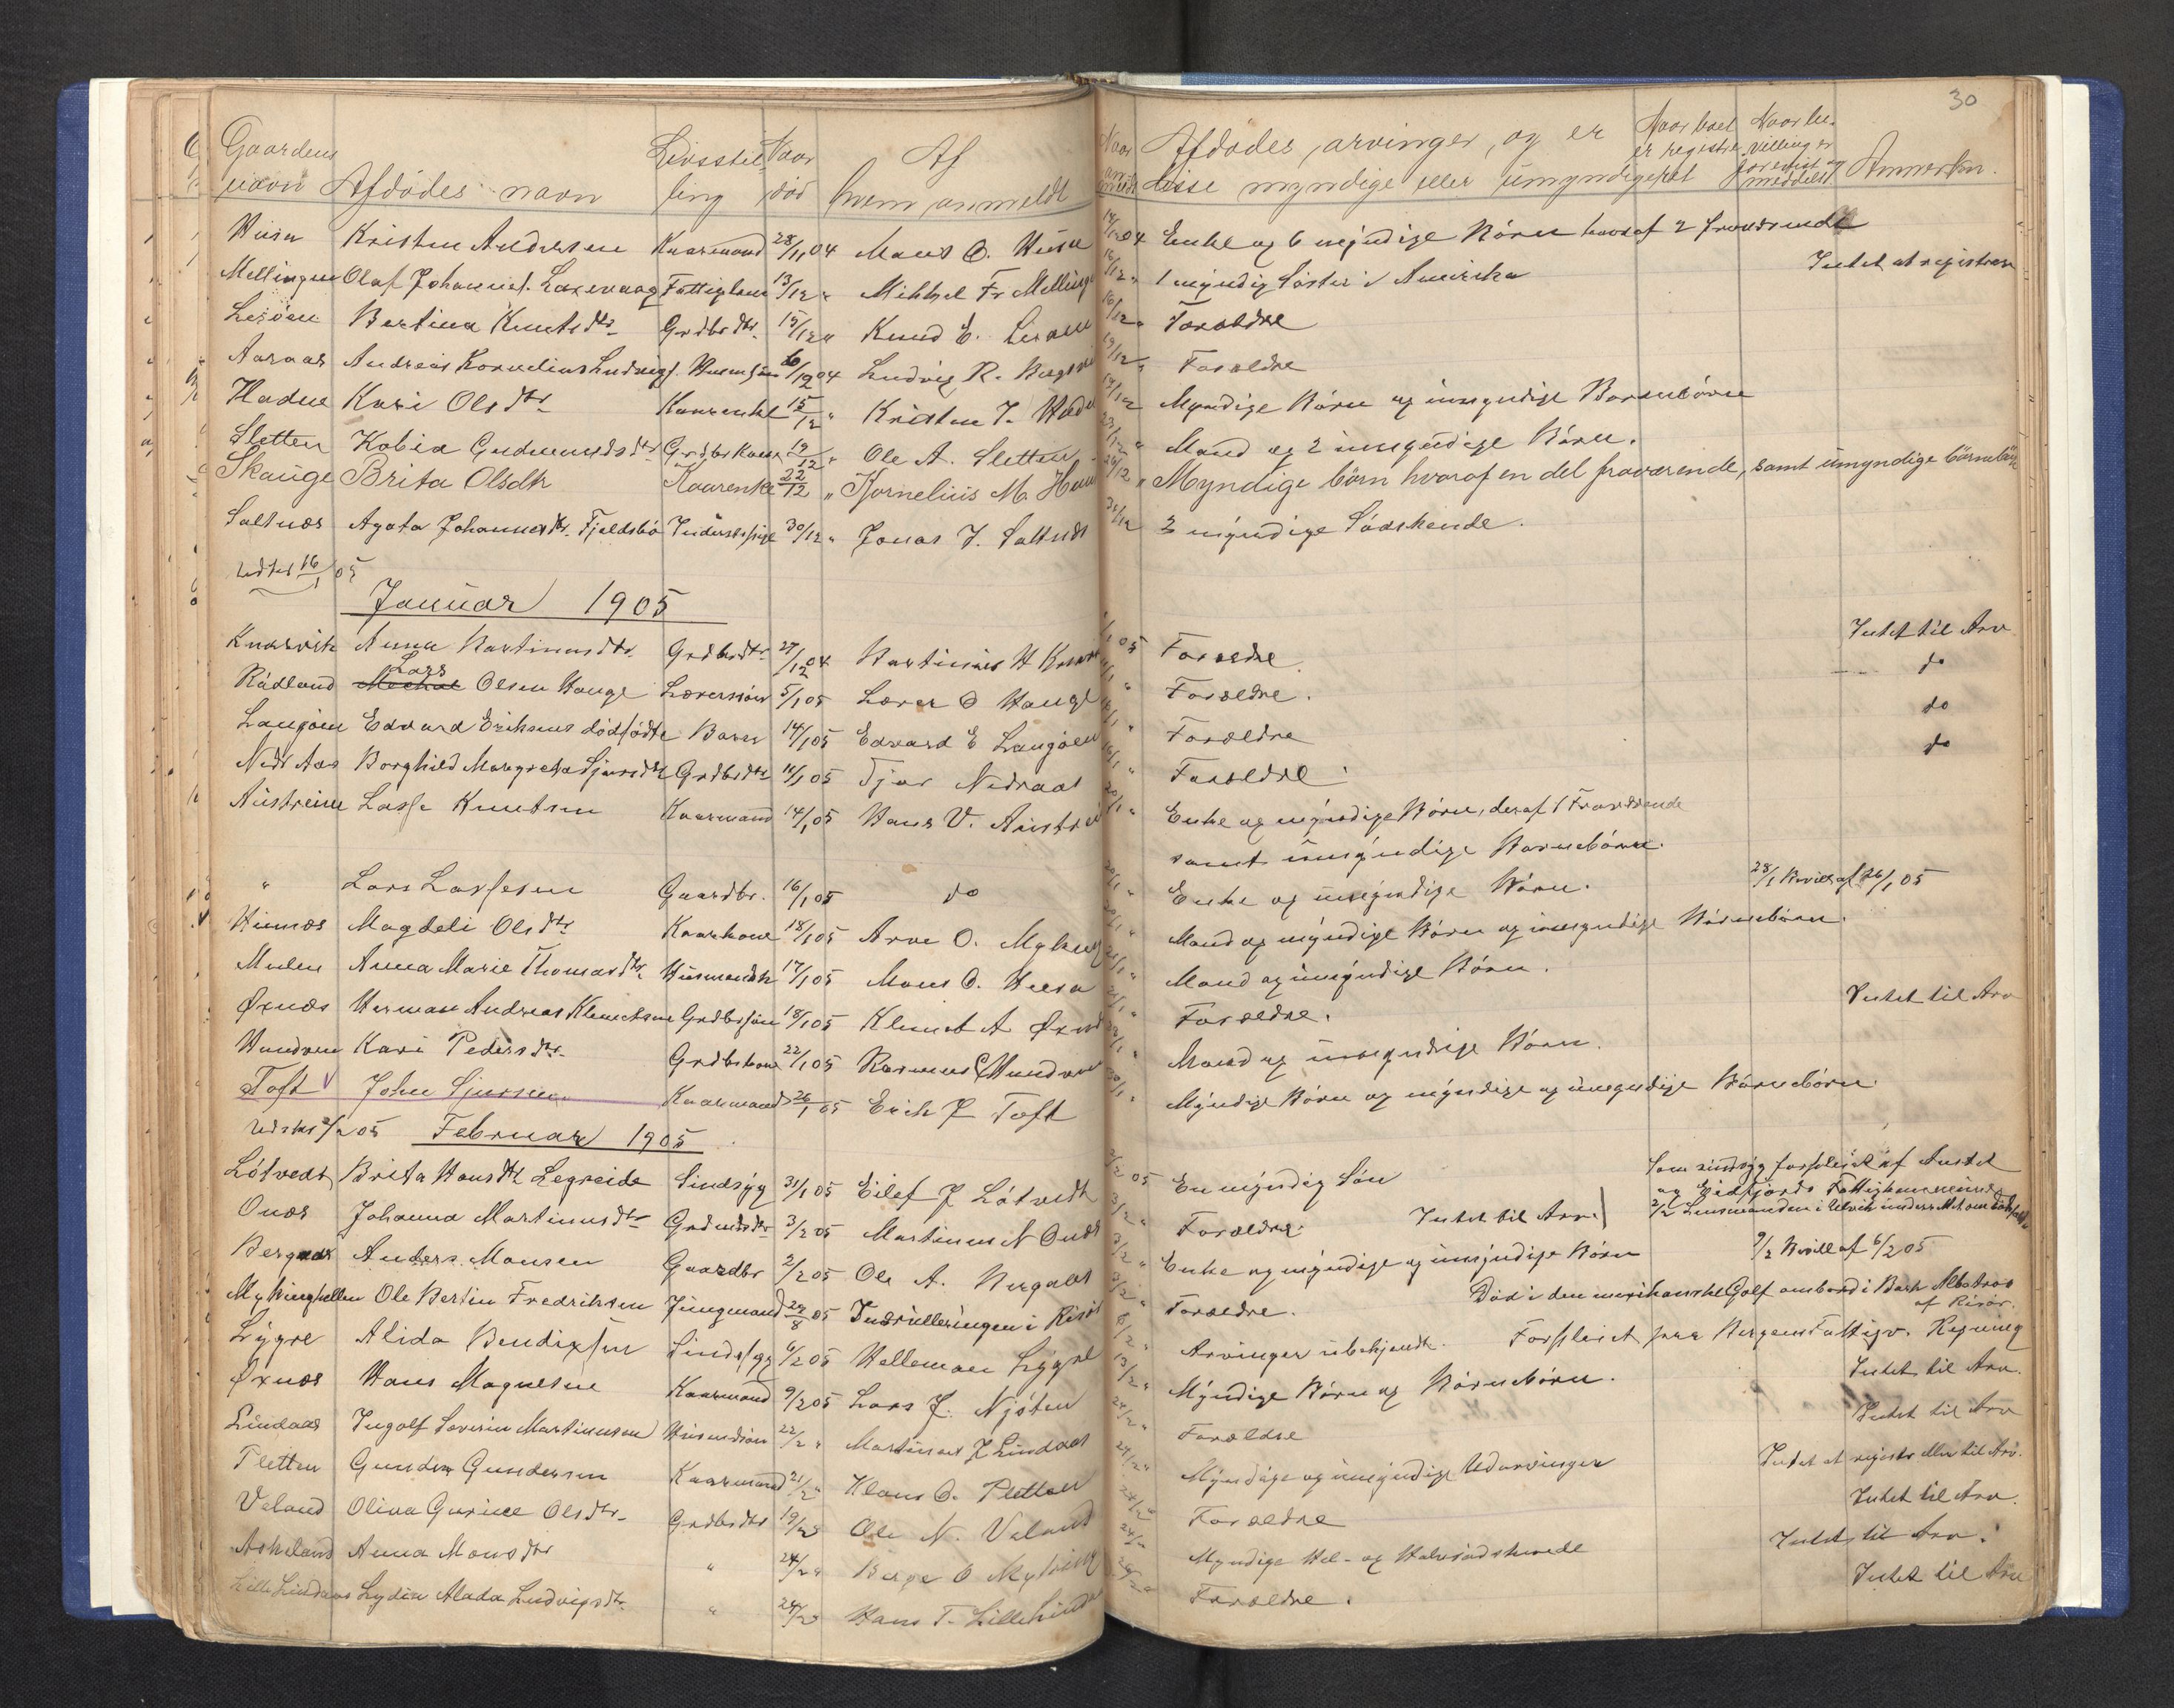 30
Gaardens navn Afdødes navn Livsstilling Naar død Af hvem anmeldt Naar anmeldt Afdødes arvinger, og er disse myndige eller umyndige Naar boet er registreret Naar bevilling er forevist og meddelt Anmerkn.
Husa Kristen Andersen Kaarmand 28/11 04 Mons O. Husa 14/12 04 Enke og 6 myndige Børn hvoraf 2 fraværende
Mellingen Olaf Johannes. Laxevaag Fattiglem 13/12 " Mikkel Fr Mellinge 16/12 " 1 myndig Søster i Amerika Intet at registrere
Lerøen Bertina Knutsdtr. Grdbrdtr. 15/12 " Knud E. Lerøen 16/12 " Forældre
Aaraas Andreas Kornelius Ludvigs. Husm søn 6/12 04 Ludvig R. 19/12 " Forældre
Hodne Kari Olsdtr. Kaarenke 15/12 " Kristen J. Hodne 19/12 Myndige Børn og umyndige Barnebørn
Sletten Kobia Gudmundsdtr Grdbrkone 19/12 " Ole A. Sletten 23/12 " Mand og 2 umyndige Børn.
Skauge Brita Olsdtr Kaarenke 22/12 " Kornelius M. 24/12 " Myndige børn hvoraf en del fraværende, samt umyndige børnebørn
Saltnæs Agata Johannesdtr. Fjeldsbø Inderstpige 30/12 " Jonas J. Saltnæs 31/12 3 myndige Sødskende.
Udskr 16/1 05
Januar 1905
Knarvik Anna Martinusdtr. Grdbrdtr. 27/12 04 Martinus H 05 Forældre. Intet til Arv
Rådland Lars Olsen Hauge Lærersøn 5/1 05 Lærer O Hauge Forældre. do
Langøen Edvard Eriksens dødfødte Barn 14/1 05 Edvard E Langøen Forældre do
Nedr Aas Borghild Margreta Sjursdtr Grdbrdtr 11/1 05 Sjur Nedraas 16/1 " Forældre. do
Austreim Lasse Knutsen Kaarmand 14/1 05 Hans V. 20/1 " Enke og myndige Børn, deraf 1 Fraværende
samt umyndige Barnebørn.
" Lars Lassesen Gaardbr. 16/1 05 do 20/1 " Enke og umyndige Børn. 28/1 Bevill af 26/1 05
Magdeli Olsdtr Kaarkone 18/1 05 Arne O. Myking 20/1 " Mand og myndige Børn og umyndige Børnebørn.
Mulen Anna Marie Thomasdtr. 17/1 05 Mons O. Husa 21/1 " Mand og umyndige Børn.
Øxnæs Herman Andreas Klemetsen Grdbrsøn 18/1 05 Klemet A Øxnæs " Forældre. Intet til Arv
Hundven Kari Pedersdtr. Grdbrkone 22/1 05 Rasmus Hundven Mand og umyndige Børn.
Toft John Sjursen Kaarmand 26/1 05 Erik J Toft 30/1 " Myndige Børn og myndige og umyndige Børnebørn.
Udskr 2/2 05 Februar 1905
Løtvedt Brita Hansdtr Legreide Sindsyg 31/1 05 Eilef J Løtvedt 2/2 05 En myndig Søn Som sindsyg forpleiet af
og Eidfjords Fattigkommune
Onæs Johanna Martinusdtr 3/2 05 Martinus N Onæs 3/2 " Forældre. Intet til Arv. 2/2 Lensmanden i Ulvik underrettet om
Anders Monsen Gaardbr 2/2 05 Ole A. 3/2 " Enke og myndige og umyndige Børn 9/2 Bevill af 6/2 05
Mykinghellen Ole Bertin Fredriksen Jungmand 05 Indrulleringen i Risør 3/2 " Forældre. Død i den mexikanske Golf ombord i Bark Albatros
af Risør.
Lygre Alida Bendixsen Sindssyg 6/2 05 Helleman Lygre 8/2 " Arvinger ubekjendt. Forpleiet paa Bergens Fattigv. Regning
Øxnæs Hans Magnesen Kaarmand 9/2 05 Lars J. Njøten 13/2 " Myndige Børn og Børnebørn. Intet til Arv.
Lindaas Ingolf Severin Martinusen Husmdsøn 22/2 " Martinus J Lindaas 24/2 " Forældre Intet til Arv
Gunder Gundersen Kaarmand 21/2 " Klaus O. 24/2 " Myndige og umyndige Udarvinger Intet at registr eller til Arv.
Veland Oliva Gurine Olsdtr. Grdbrdtr 19/2 Ole N. Veland " Forældre Intet til Arv.
Askeland Anna Monsdtr " 24/2 " Berge O Myking 24/2 Myndige Hel- og Halvsødskende Intet til Arv.
Lille Lindaas Lydia Alada Ludvigsdtr. " 24/2 Hans T. Lillelindaas Forældre. Intet til Arv